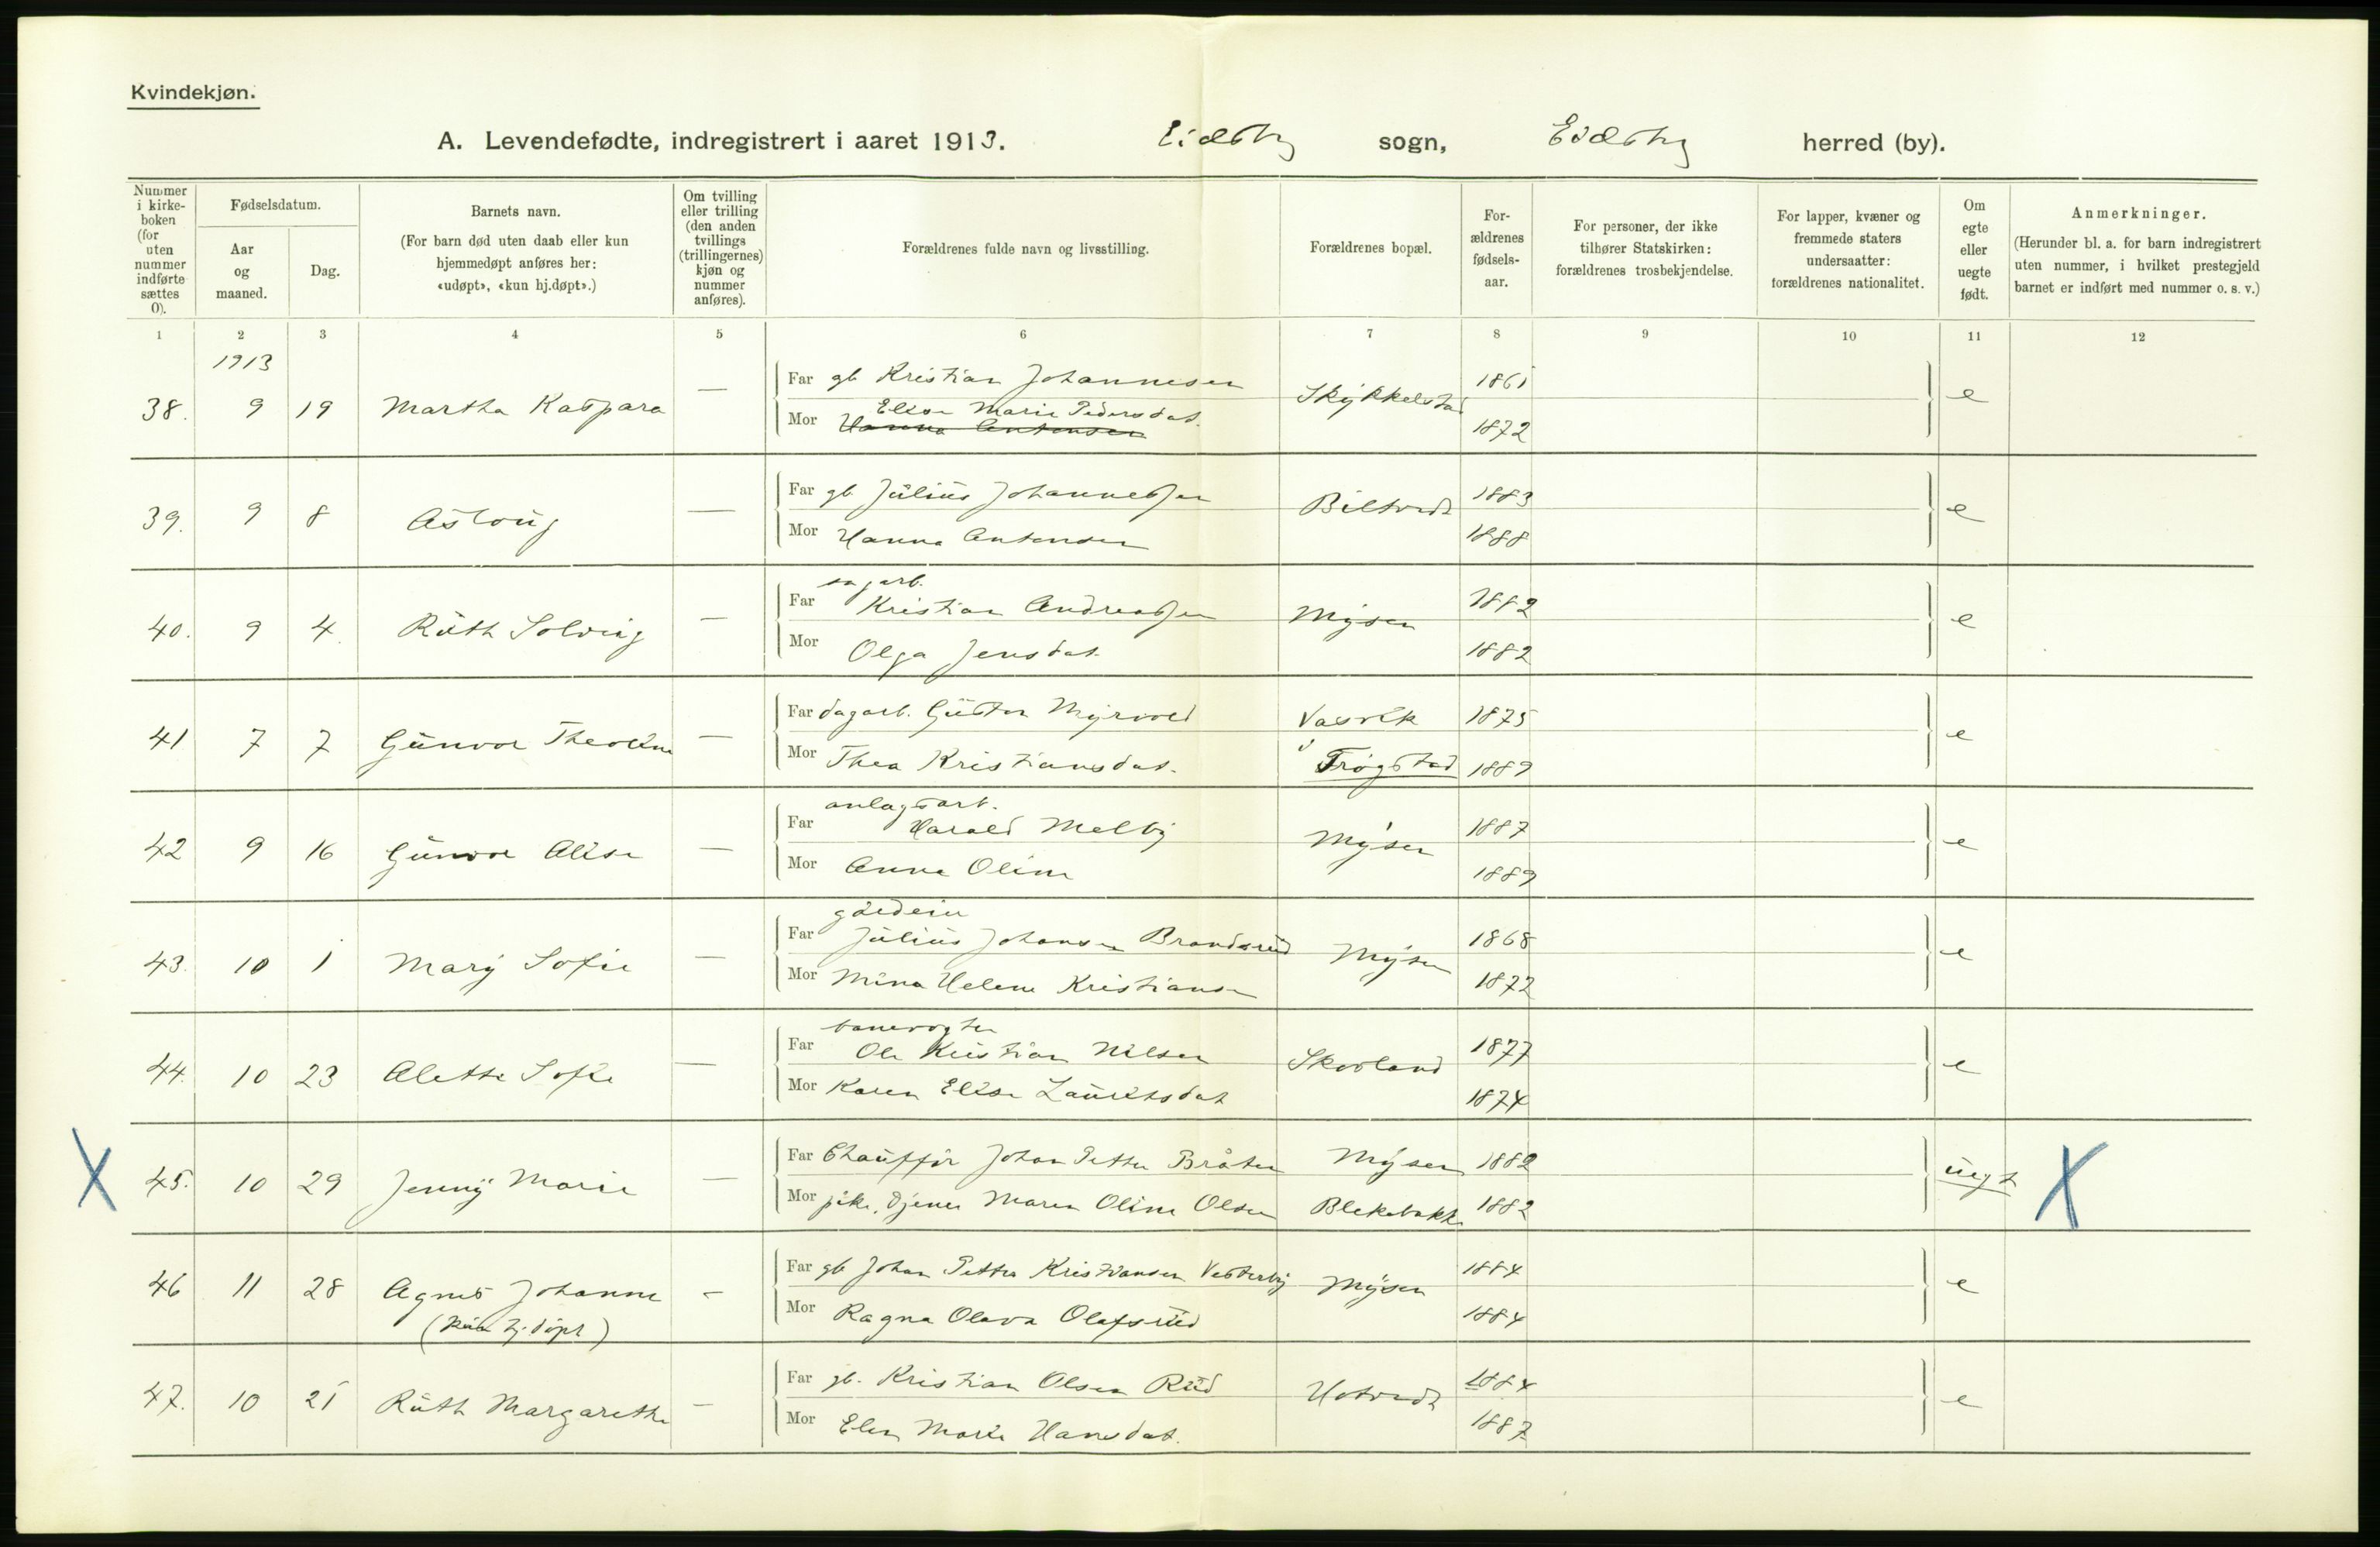 Kvindekjøn.
A. Levendefødte, indregistrert i aaret 1913. Eidsbg sogn, Eidsbg herred (by).
Nummer i kirkeboken (for uten nummer indførte sættes 0).
Fødselsdatum.
Aar og maaned.
Dag.
Barnets navn.
(For barn død uten daab eller kun hjemmedøpt anføres her: «udøpt», «kun hj.døpt».)
Om tvilling eller trilling (den anden tvillings (trillingernes) kjøn og nummer anføres).
Forældrenes fulde navn og livsstilling.
Forældrenes bopæl.
Forældrenes fødselsaar.
For personer, der ikke tilhører Statskirken: forældrenes trosbekjendelse.
For lapper, kvæner og fremmede staters undersaatter: forældrenes nationalitet.
Om egte eller uegte født.
Anmerkninger.
(Herunder bl. a. for barn indregistrert uten nummer, i hvilket prestegjeld barnet er indført med nummer o. s. v.)
1 2 3 4 5 6 7 8 9 10 11 12
1913
38. 9 19 Martha Kaspara — Far gb Kristian Johannesen Skykkelstad 1861 e
Mor Elise Marie Pedersdat. 1872
Hanna Antonsen
39. 9 8 Aslaug — Far gb Julius Johannessen Biltvedt 1883 e
Mor Hanna Antonsen 1888
40. 9 4 Ruth Solveig — Far sagarb. Kristian Andreassen Mysen 1882 e
Mor Olga Jensdat. 1882
41 7 7 Gunvor Theoline — Far dagarb. Gustav Myrvold Vasvik 1875 e
Mor Thea Kristiansdat. i Trøgstad 1889
42 9 16 Gunvor Alise — Far anlagsarb. Harald Melby Mysen 1887 e
Mor Anna Oline 1889
43. 10 1 Mary Sofie — Far gårdeier Julius Johansen Brandsrud Mysen 1868 e
Mor Mina Helene Kristiansen 1872
44. 10 23 Alette Sofie — Far banevogter Ole Kristian Nilsen Skovland 1877 e
Mor Karen Elise Lauritsdat 1874
X 45. 10 29 Jenny Marie — Far Chauffør Johan Petter Bråten Mysen 1882 uegt X
Mor pike, tjener Maren Oline Olsen Blekebakke 1882
46 11 28 Agnes Johanne — Far gb Johan Petter Kristiansen Vesterby Mysen 1884 e
(kun hj. døpt) Mor Ragna Olava Olafsrud 1884
47. 10 21 Ruth Margarethe — Far gb. Kristian Olsen Rud Hotvedt 1884 e
Mor Elen Marie Hansdat. 1887